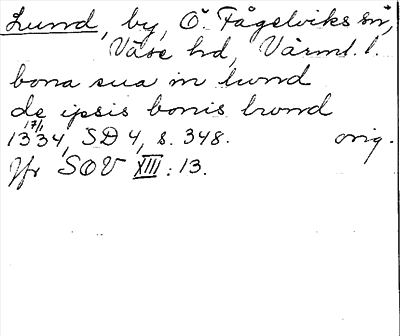 Lund, by, Ö. Fågelviks sn,
Väse hd, Värml. l.
bona sua in lund
de ipsis bonis lund
17/1
1334, SD 4, s. 348. orig.
Jfr SOV XIII: 13.